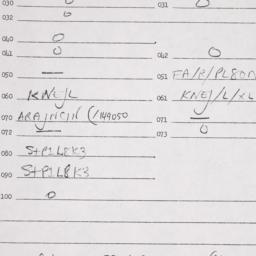 030 0 031 0
032 0
040 0
041 0 042 0
050 — 051 FA/P/PL80N
060 KNEJL 061 KNEJ/L/XL
070 ARAJNCJN (/149050 071 —
072 — 073 0
080 S+P1L8K3
090 S+P1L8K3
100 0